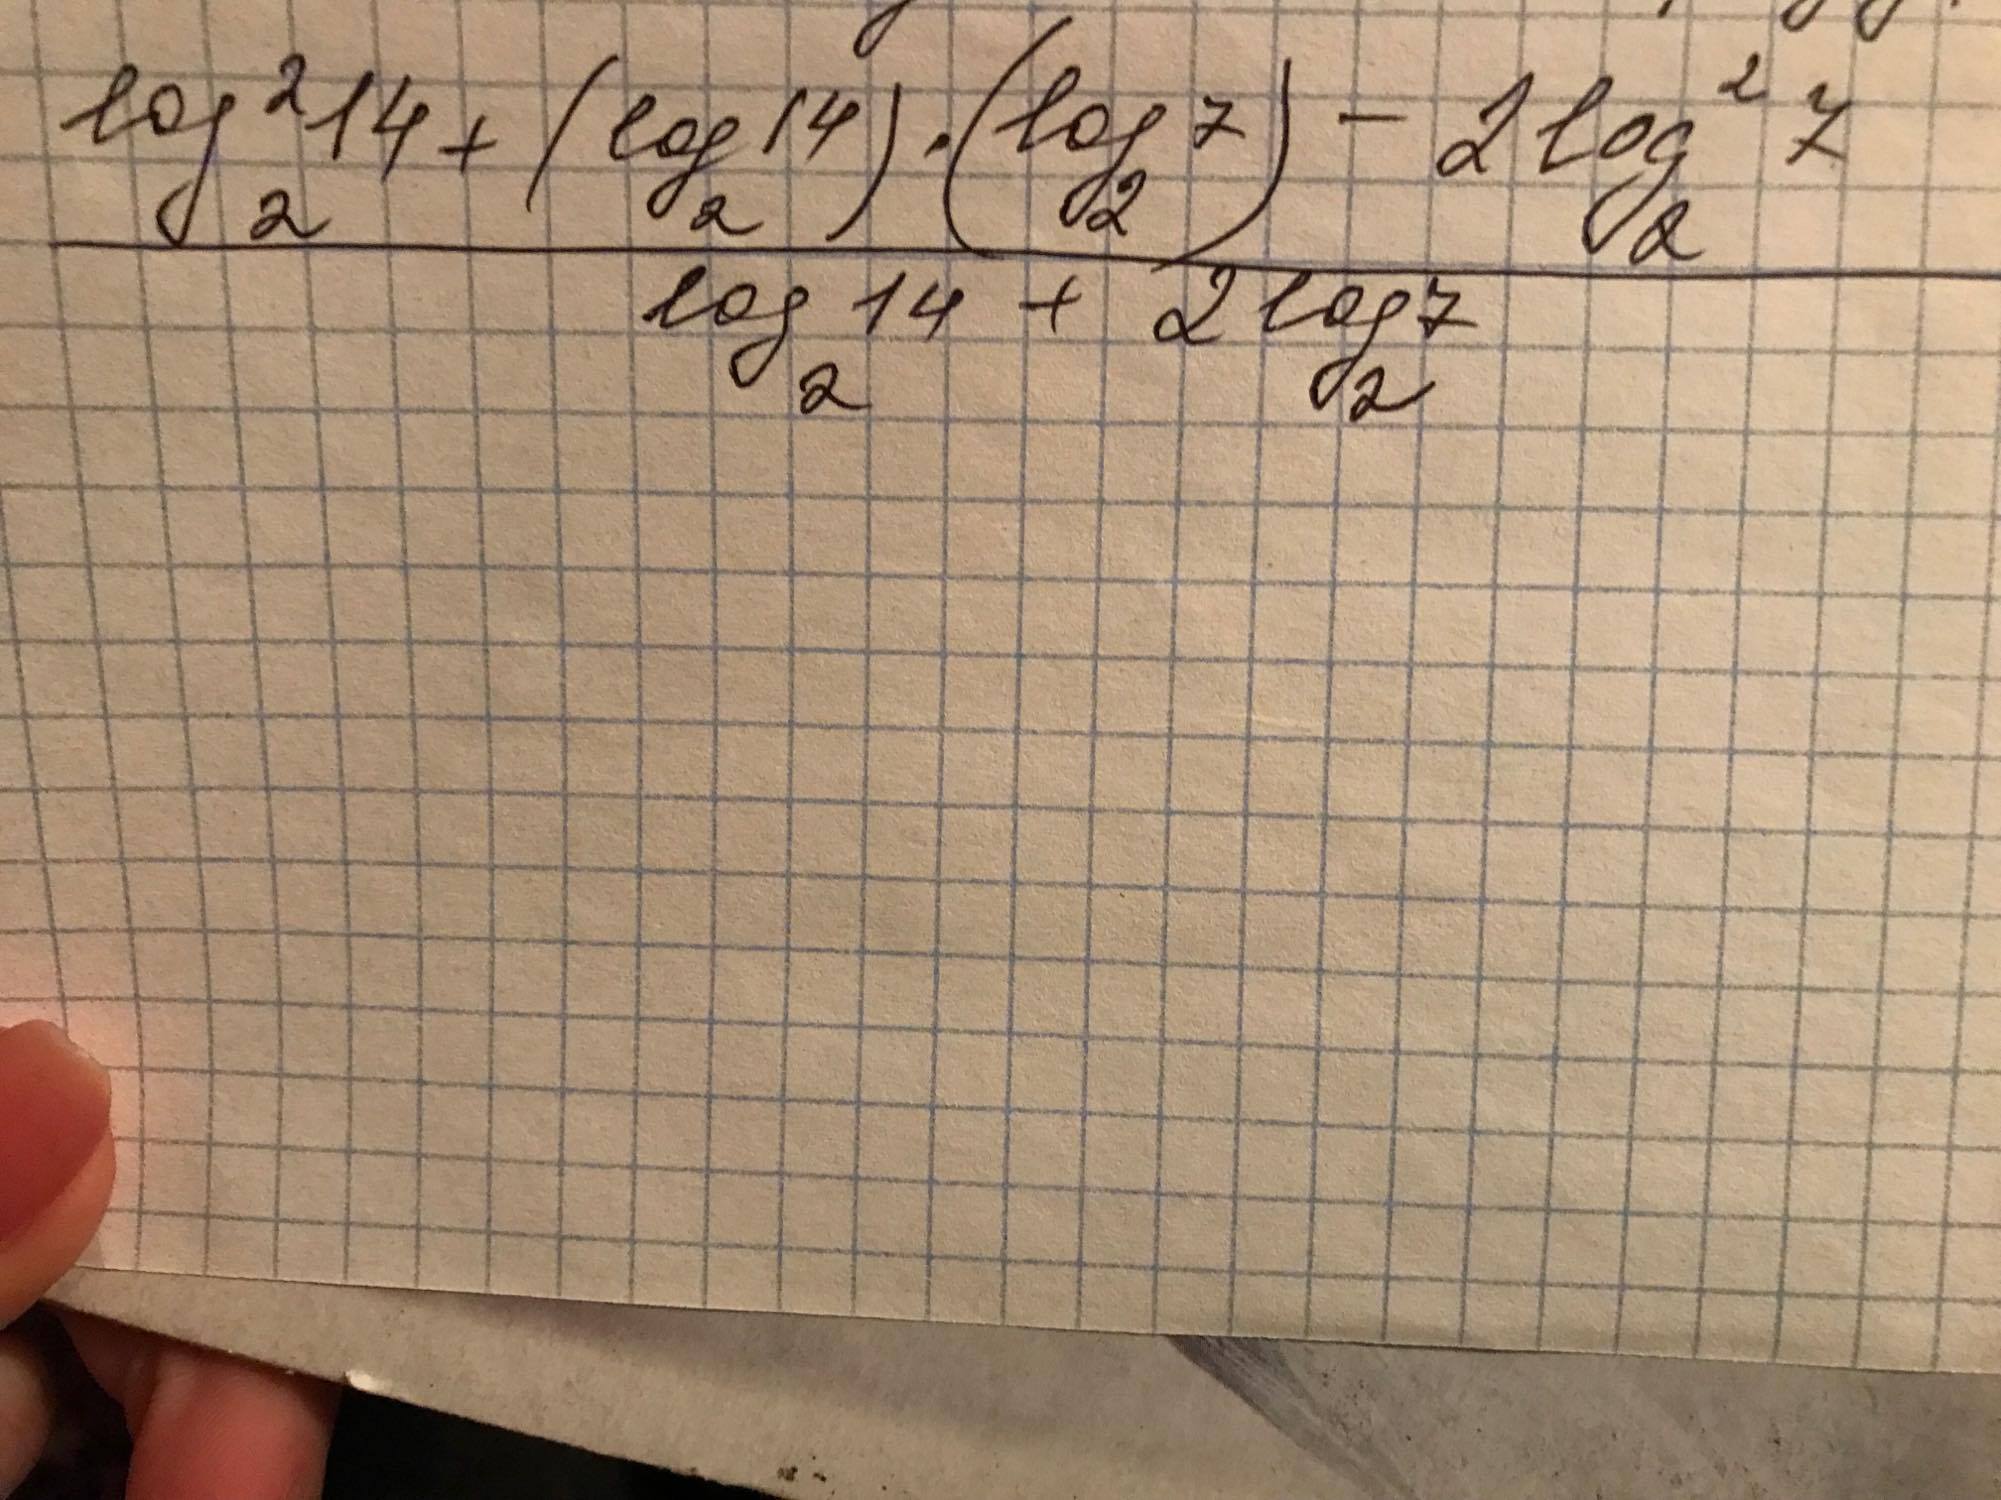 log₂²14 + (log₂14)·(log₂7) − 2log₂²7
log₂14 + 2log₂7